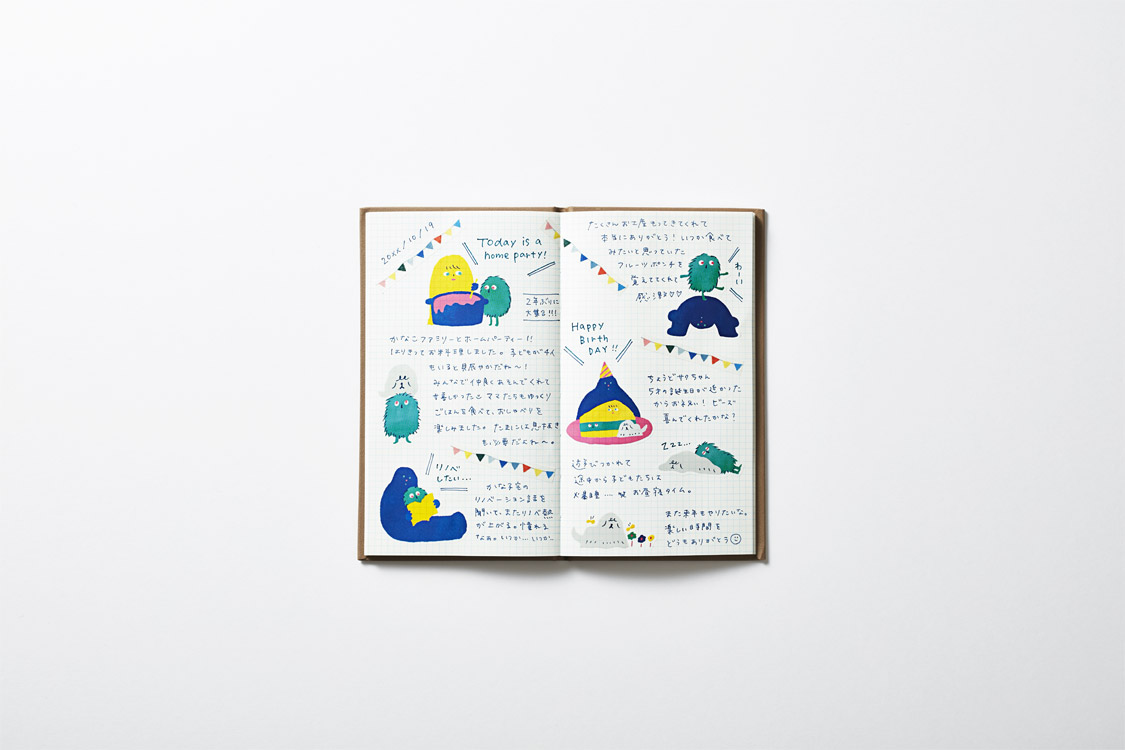 20XX/10/19
Today is a
home party!
2年ぶりに
大集合!!!
かなこファミリーとホームパーティー!!
はりきってお料理しました。子どもが4人
もいると賑やかだね〜!
みんなで仲良くあそんでくれて
嬉しかったし ママたちもゆっくり
ごはんを食べて、おしゃべりを
楽しみました。たまには息抜き
も必要だよね〜。
リノベ
したい...
かな子宅の
リノベーション話を
聞いて、またリノベ熱
が上がる。憧れる
なぁ。いつか...いつか...
たくさんお土産もってきてくれて
本当にありがとう! いつか食べて
みたいと思っていた
フルーツポンチを
覚えててくれて
感激♡♡
わーい
Happy
Birth
DAY!!
ちょうどサクちゃん
5才の誕生日が近かった
からお祝い! ビーズ
喜んでくれたかな?
ZZZ...
遊びつかれて
途中から子どもたちは
お昼寝... 笑 お昼寝タイム。
また来年もやりたいな。
楽しい時間を
どうもありがとう